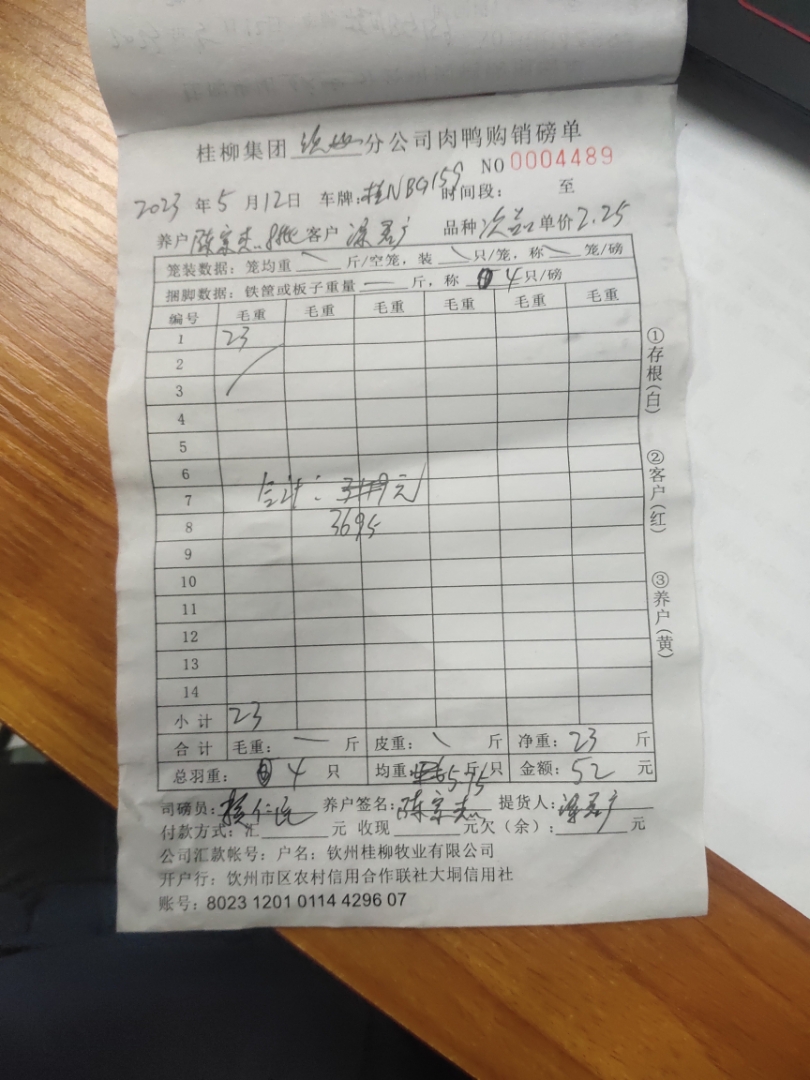 桂柳集团 钦州 分公司肉鸭购销磅单
NO 0004489
2023 年 5 月 12 日 车牌：桂NBG159 时间段： 至
养户 陈宗杰 客户 品种 次品 单价 2.25
笼装数据：笼均重 斤/空笼，装 只/笼，称 笼/磅
捆脚数据：铁筐或板子重量 — 斤，称 4 只/磅
编号 毛重 毛重 毛重 毛重 毛重 毛重
1 23
2
3
4
5
6
7 合计： 元
8 3695
9
10
11
12
13
14
小计 23
合计 毛重： — 斤 皮重： \ 斤 净重：23 斤
总羽重： 4 只 均重： 5.75 斤/只 金额：52 元
司磅员： 养户签名：陈宗杰 提货人：
付款方式：汇 元 收现 元欠（余）： 元
公司汇款帐号：户名：钦州桂柳牧业有限公司
开户行：钦州市区农村信用合作联社大垌信用社
账号：8023 1201 0114 4296 07
①存根（白）
②客户（红）
③养户（黄）